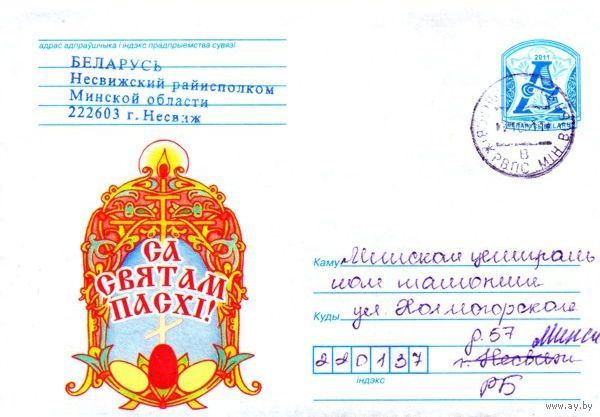 адрас адпраўшчыка і індэкс прадпрыемства сувязі
БЕЛАРУСЬ
Несвижский райисполком
Минской области
222603 г. Несвиж
2011
А
BELARUS
СА
СВЯТАМ
ПАСХІ!
Каму Минская централь
ная таможня
Куды ул. Холмогорская
д. 57 Минск
220137 г. Несвиж
індэкс
РБ
www.ay.by